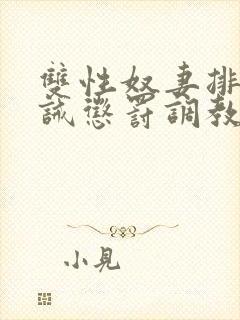 雙性奴妻排
誡懲罰調教
小見